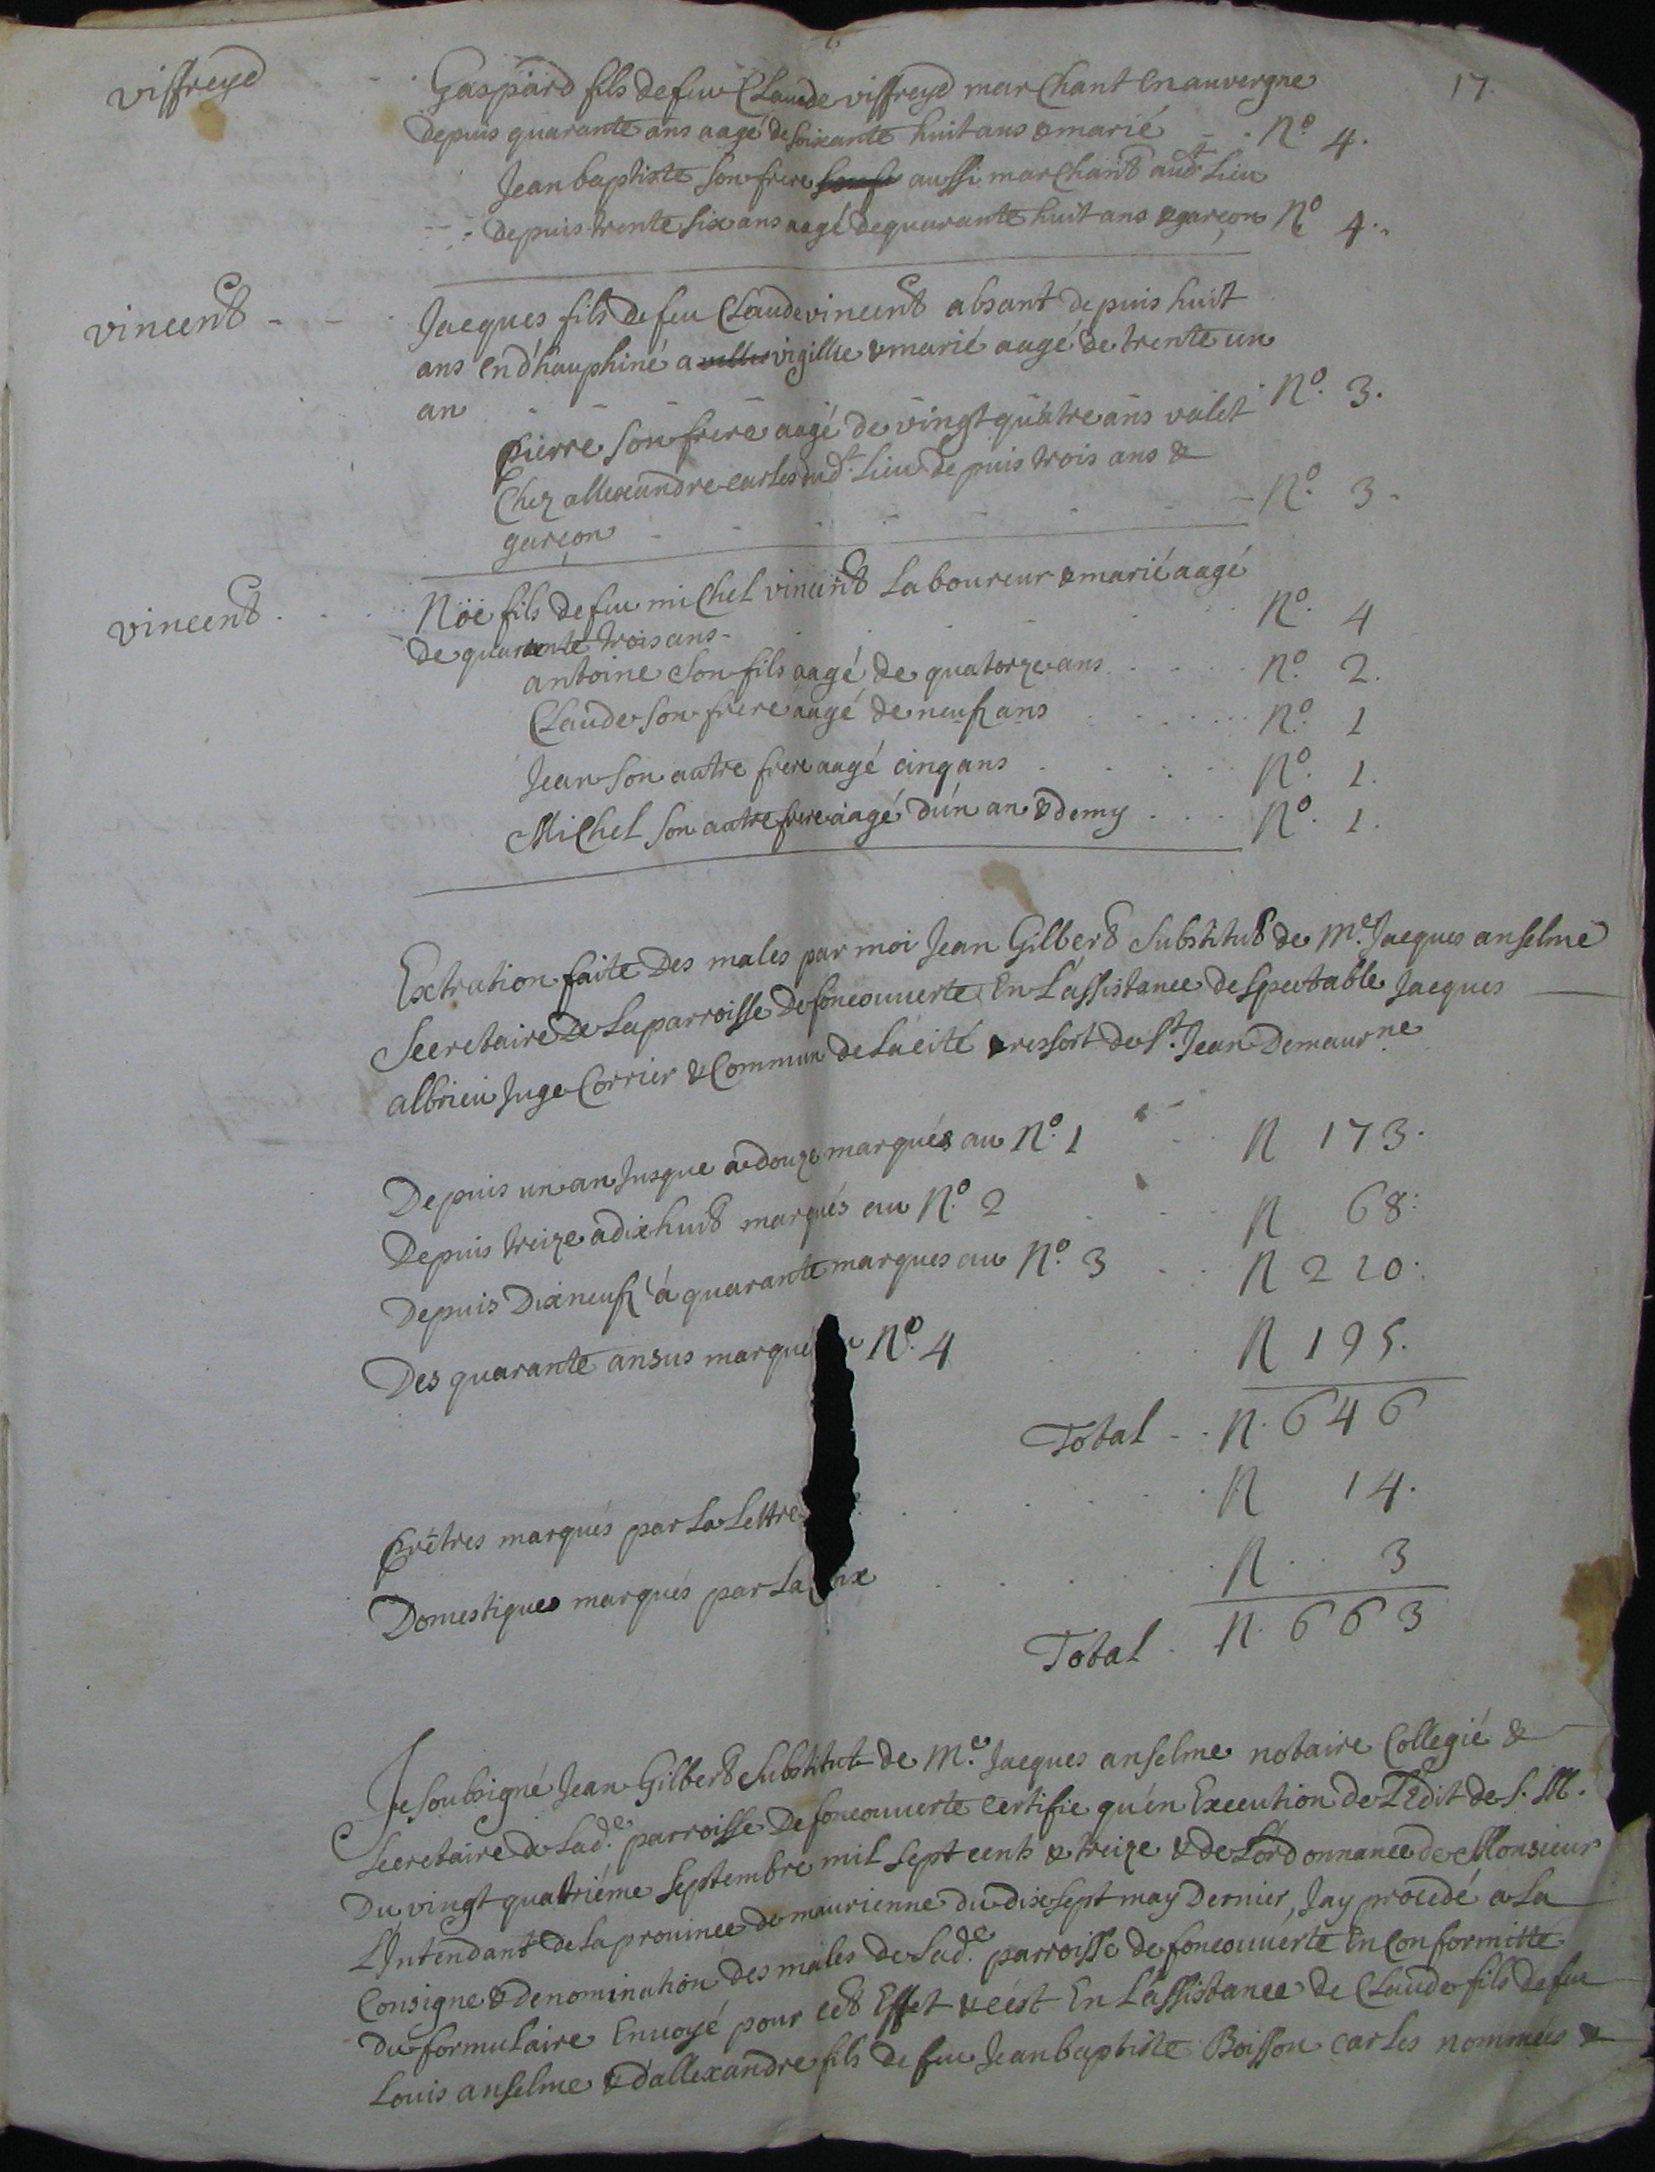 17.
viffreyd Gaspard fils de feu Claude viffreyd marchant en auvergne
depuis quarante ans aagé de soixante huit ans & marié N.º 4.
Jean baptiste son frere aussi marchant aud.t Lieu
depuis trente six ans aagé de quarante huit ans & garçon N.º 4.
vincent Jacques fils de feu Claude vincent absant depuis huit
ans en d'hauphiné a vigillie & marié aagé de trente un
an N.º 3.
pierre son frere aagé de vingt quatre ans valet
Chez allexandre carles dud.t Lieu depuis trois ans &
garçon N.º 3.
vincent Nöe fils de feu michel vincent Laboureur & marié aagé
de quarante trois ans N.º 4
antoine son fils aagé de quatorze ans N.º 2.
Claude son frere aagé de neuf ans N.º 1
Jean son autre frere aagé cinq ans N.º 1.
Michel son autre frere aagé d'ún an & demy N.º 1.
Extration faite Des males par moi Jean Gilbert Substitut de M.e Jacques anselme
Secretaire de La parroisse De foncouuerte En L'assistance de spectable Jacques
albrieu Juge Corrier & Commun de La cité & ressort de S.t Jean Demaurne
Depuis un an Jusque a douze marqués au N.º 1 N 173.
Depuis treize a dix huit marqués au N.º 2 N 68:
Depuis Dix neuf à quarante marques au N.º 3 N 210.
Des quarante ansus marqué N.º 4 N 195.
Total N. 646
prêtres marqués par La Lettre N 14.
Domestiques marqués par La N 3
Total N. 663
Je soubsigné Jean Gilbert Substitut de M.e Jacques anselme notaire Collegié &
Secretaire de Lad.e parroisse De foncouuerte certifie qu'én Execution de L'Edit de S. M.
Du vingt quatriéme Septembre mil sept cents & treize & de L'ordonnance de Monsieur
L'Intendant de La prouince de maurienne du dix sept may Dernier, Jay procedé a La
Consigne & denomination des males de Lad.e parroisse de foncouuerte En Conformitté
Du formulaire Enuoyé pour cet Effet & c'ést En L'assistance de Claude fils de feu
Louis anselme & d'allexandre fils de feu Jean baptiste Boisson carles nommées &